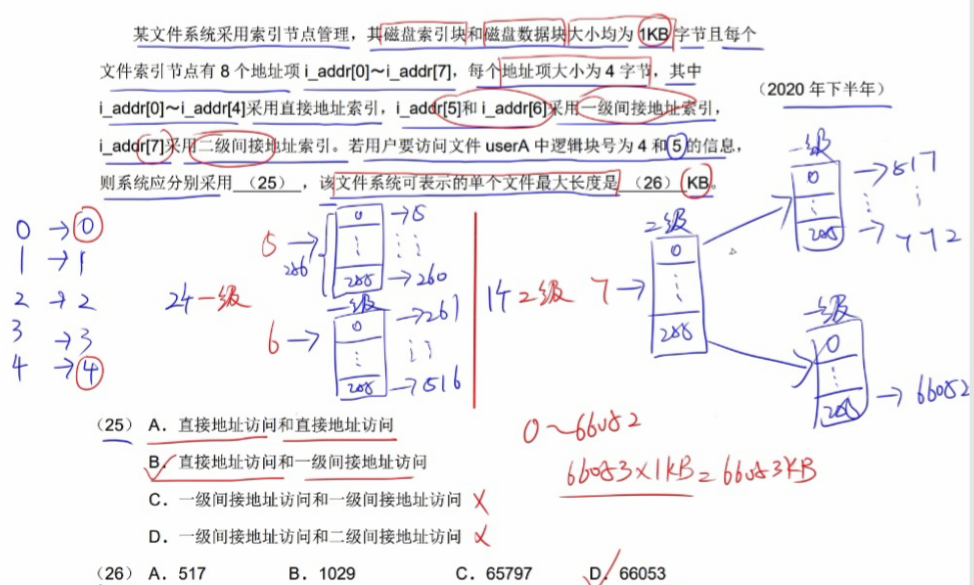 某文件系统采用索引节点管理，其磁盘索引块和磁盘数据块大小均为 1KB 字节且每个
文件索引节点有 8 个地址项 i_addr[0]～i_addr[7]，每个地址项大小为 4 字节，其中
（2020 年下半年）
i_addr[0]～i_addr[4]采用直接地址索引，i_addr[5]和 i_addr[6]采用一级间接地址索引，
i_addr[7]采用二级间接地址索引。若用户要访问文件 userA 中逻辑块号为 4 和 5 的信息，
则系统应分别采用 （25） ，该文件系统可表示的单个文件最大长度是 （26） KB。
0 → 0
1 → 1
2 → 2
3 → 3
4 → 4
一级
5 →
256
0 → 5
255 → 260
一级
6 →
0 → 261
255 → 516
2级
2级 7 →
0
255
一级
0 → 517
255 → 772
一级
0
255 → 66052
（25） A．直接地址访问和直接地址访问
B．直接地址访问和一级间接地址访问
C．一级间接地址访问和一级间接地址访问
D．一级间接地址访问和二级间接地址访问
0～66052
66053×1KB=66053KB
（26） A．517 B．1029 C．65797 D．66053